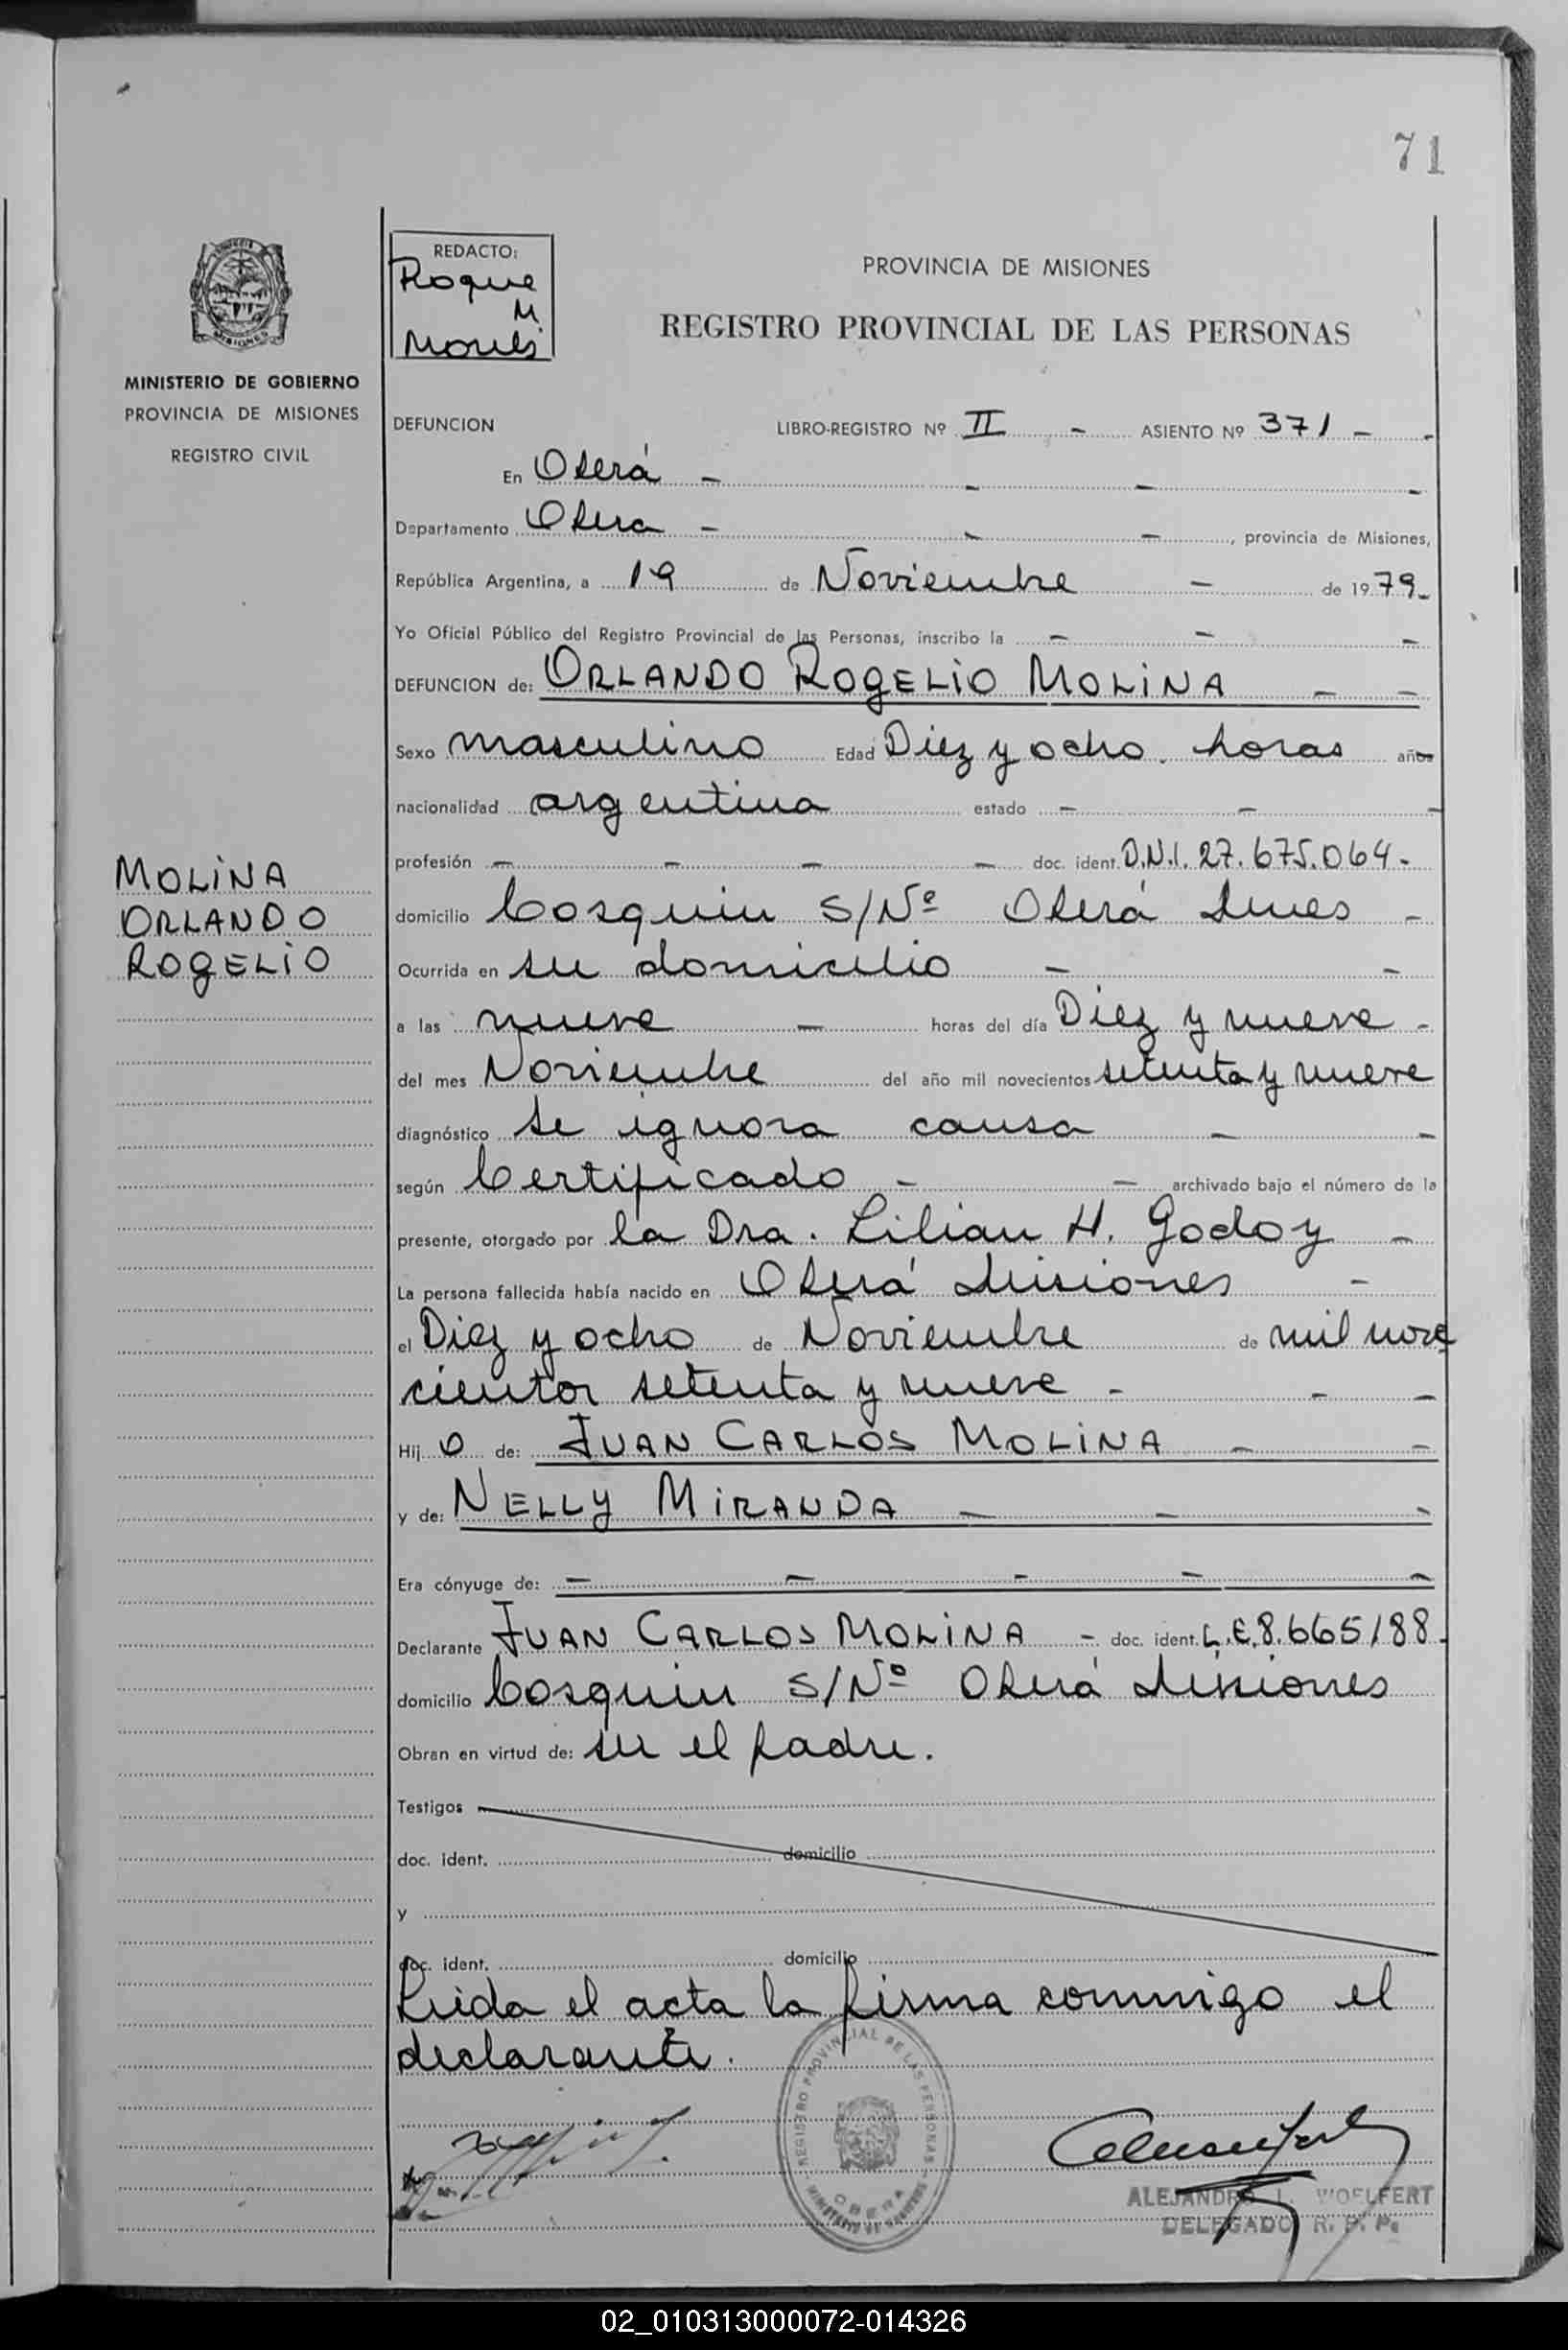 71
REDACTO:
Roque
M
PROVINCIA DE MISIONES
REGISTRO PROVINCIAL DE LAS PERSONAS
MINISTERIO DE GOBIERNO
PROVINCIA DE MISIONES
REGISTRO CIVIL
DEFUNCION LIBRO-REGISTRO Nº II - ASIENTO Nº 371 - -
En Oberá - - - -
Departamento Obera - - -, provincia de Misiones,
República Argentina, a 19 de Noviembre - de 1979-
Yo Oficial Público del Registro Provincial de las Personas, inscribo la - - -
DEFUNCION de: ORLANDO ROGELIO MOLINA - -
Sexo masculino Edad Diez y ocho. horas años
nacionalidad argentina estado - - -
profesión - - - - doc. ident. D.N.I. 27.675.064-
MOLINA
ORLANDO
ROGELIO
domicilio Cosquin S/Nº Oberá Mnes -
Ocurrida en su domicilio - -
a las nueve - horas del día Diez y nueve -
del mes Noviembre del año mil novecientos setenta y nueve
diagnóstico se ignora causa - -
según Certificado - - archivado bajo el número de la
presente, otorgado por la Dra. Lilian H. Godoy -
La persona fallecida había nacido en Oberá Misiones -
el Diez y ocho de Noviembre de mil nove
cientos setenta y nueve - - -
Hij o de: JUAN CARLOS MOLINA - -
y de: NELLY MIRANDA - - -
Era cónyuge de: - - - - -
Declarante JUAN CARLOS MOLINA - doc. ident. L.E.8.665188-
domicilio Cosquin S/Nº Oberá Misiones
Obran en virtud de: ser el padre.
Testigos
doc. ident. domicilio
y
doc. ident. domicilio
Leida el acta la firma conmigo el
declarante.
REGISTRO PROVINCIAL DE LAS PERSONAS
OBERA
MINISTERIO DE GOBIERNO
ALEJANDRO L. WOELFERT
DELEGADO R. P. P.
02_010313000072-014326